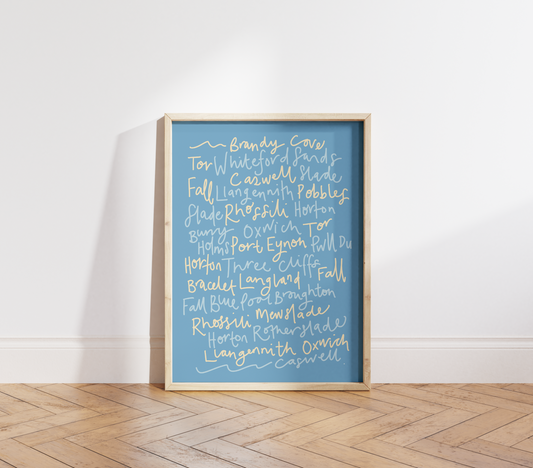 Brandy Cove
Tor Whiteford Sands
Caswell Slade
Fall Llangennith Pobbles
Slade Rhossili Horton
Burry Oxwich Tor
Holms Port Eynon Pwll Du
Horton Three Cliffs Fall
Bracelet Langland
Fall Blue Pool Broughton
Rhossili Mewslade
Horton Rotherslade
Llangennith Oxwich
Caswell